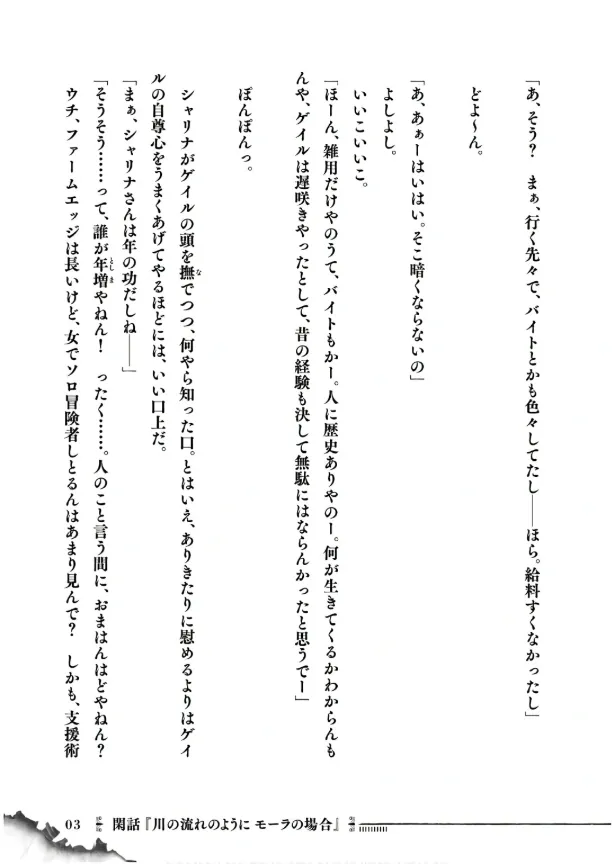 「あ、そう？　まぁ、行く先々で、バイトとかも色々してたし――ほら。給料すくなかったし」
どよ～ん。
「あ、あぁーはいはい。そこ暗くならないの」
よしよし。
いいこいいこ。
「ほーん、雑用だけやのうて、バイトもかー。人に歴史ありやのー。何が生きてくるかわからんも
んや、ゲイルは遅咲きやったとして、昔の経験も決して無駄にはならんかったと思うでー」
ぽんぽんっ。
シャリナがゲイルの頭を撫でつつ、何やら知った口。とはいえ、ありきたりに慰めるよりはゲイ
ルの自尊心をうまくあげてやるほどには、いい口上だ。
「まぁ、シャリナさんは年の功だしね――」
「そうそう……って、誰が年増やねん！　ったく……。人のこと言う間に、おまはんはどやねん？
ウチ、ファームエッジは長いけど、女でソロ冒険者しとるんはあまり見んで？　しかも、支援術
03 閑話『川の流れのように モーラの場合』